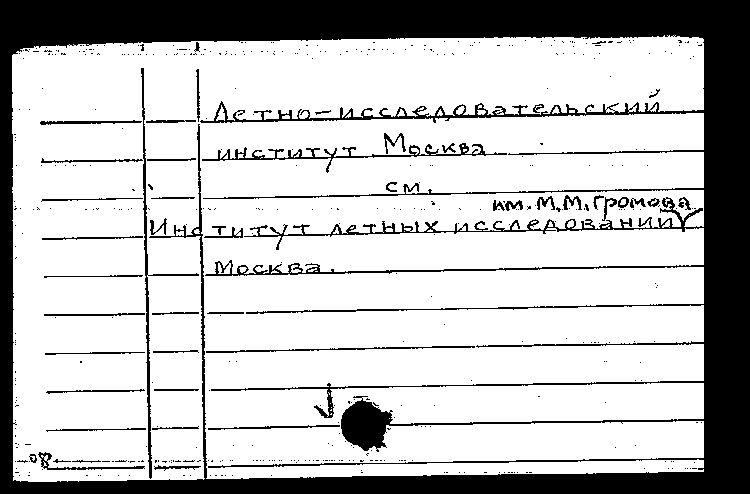 Летно-исследовательский
институт Москва
см.
им. М.М. Громова
Институт летных исследований
Москва.
08.